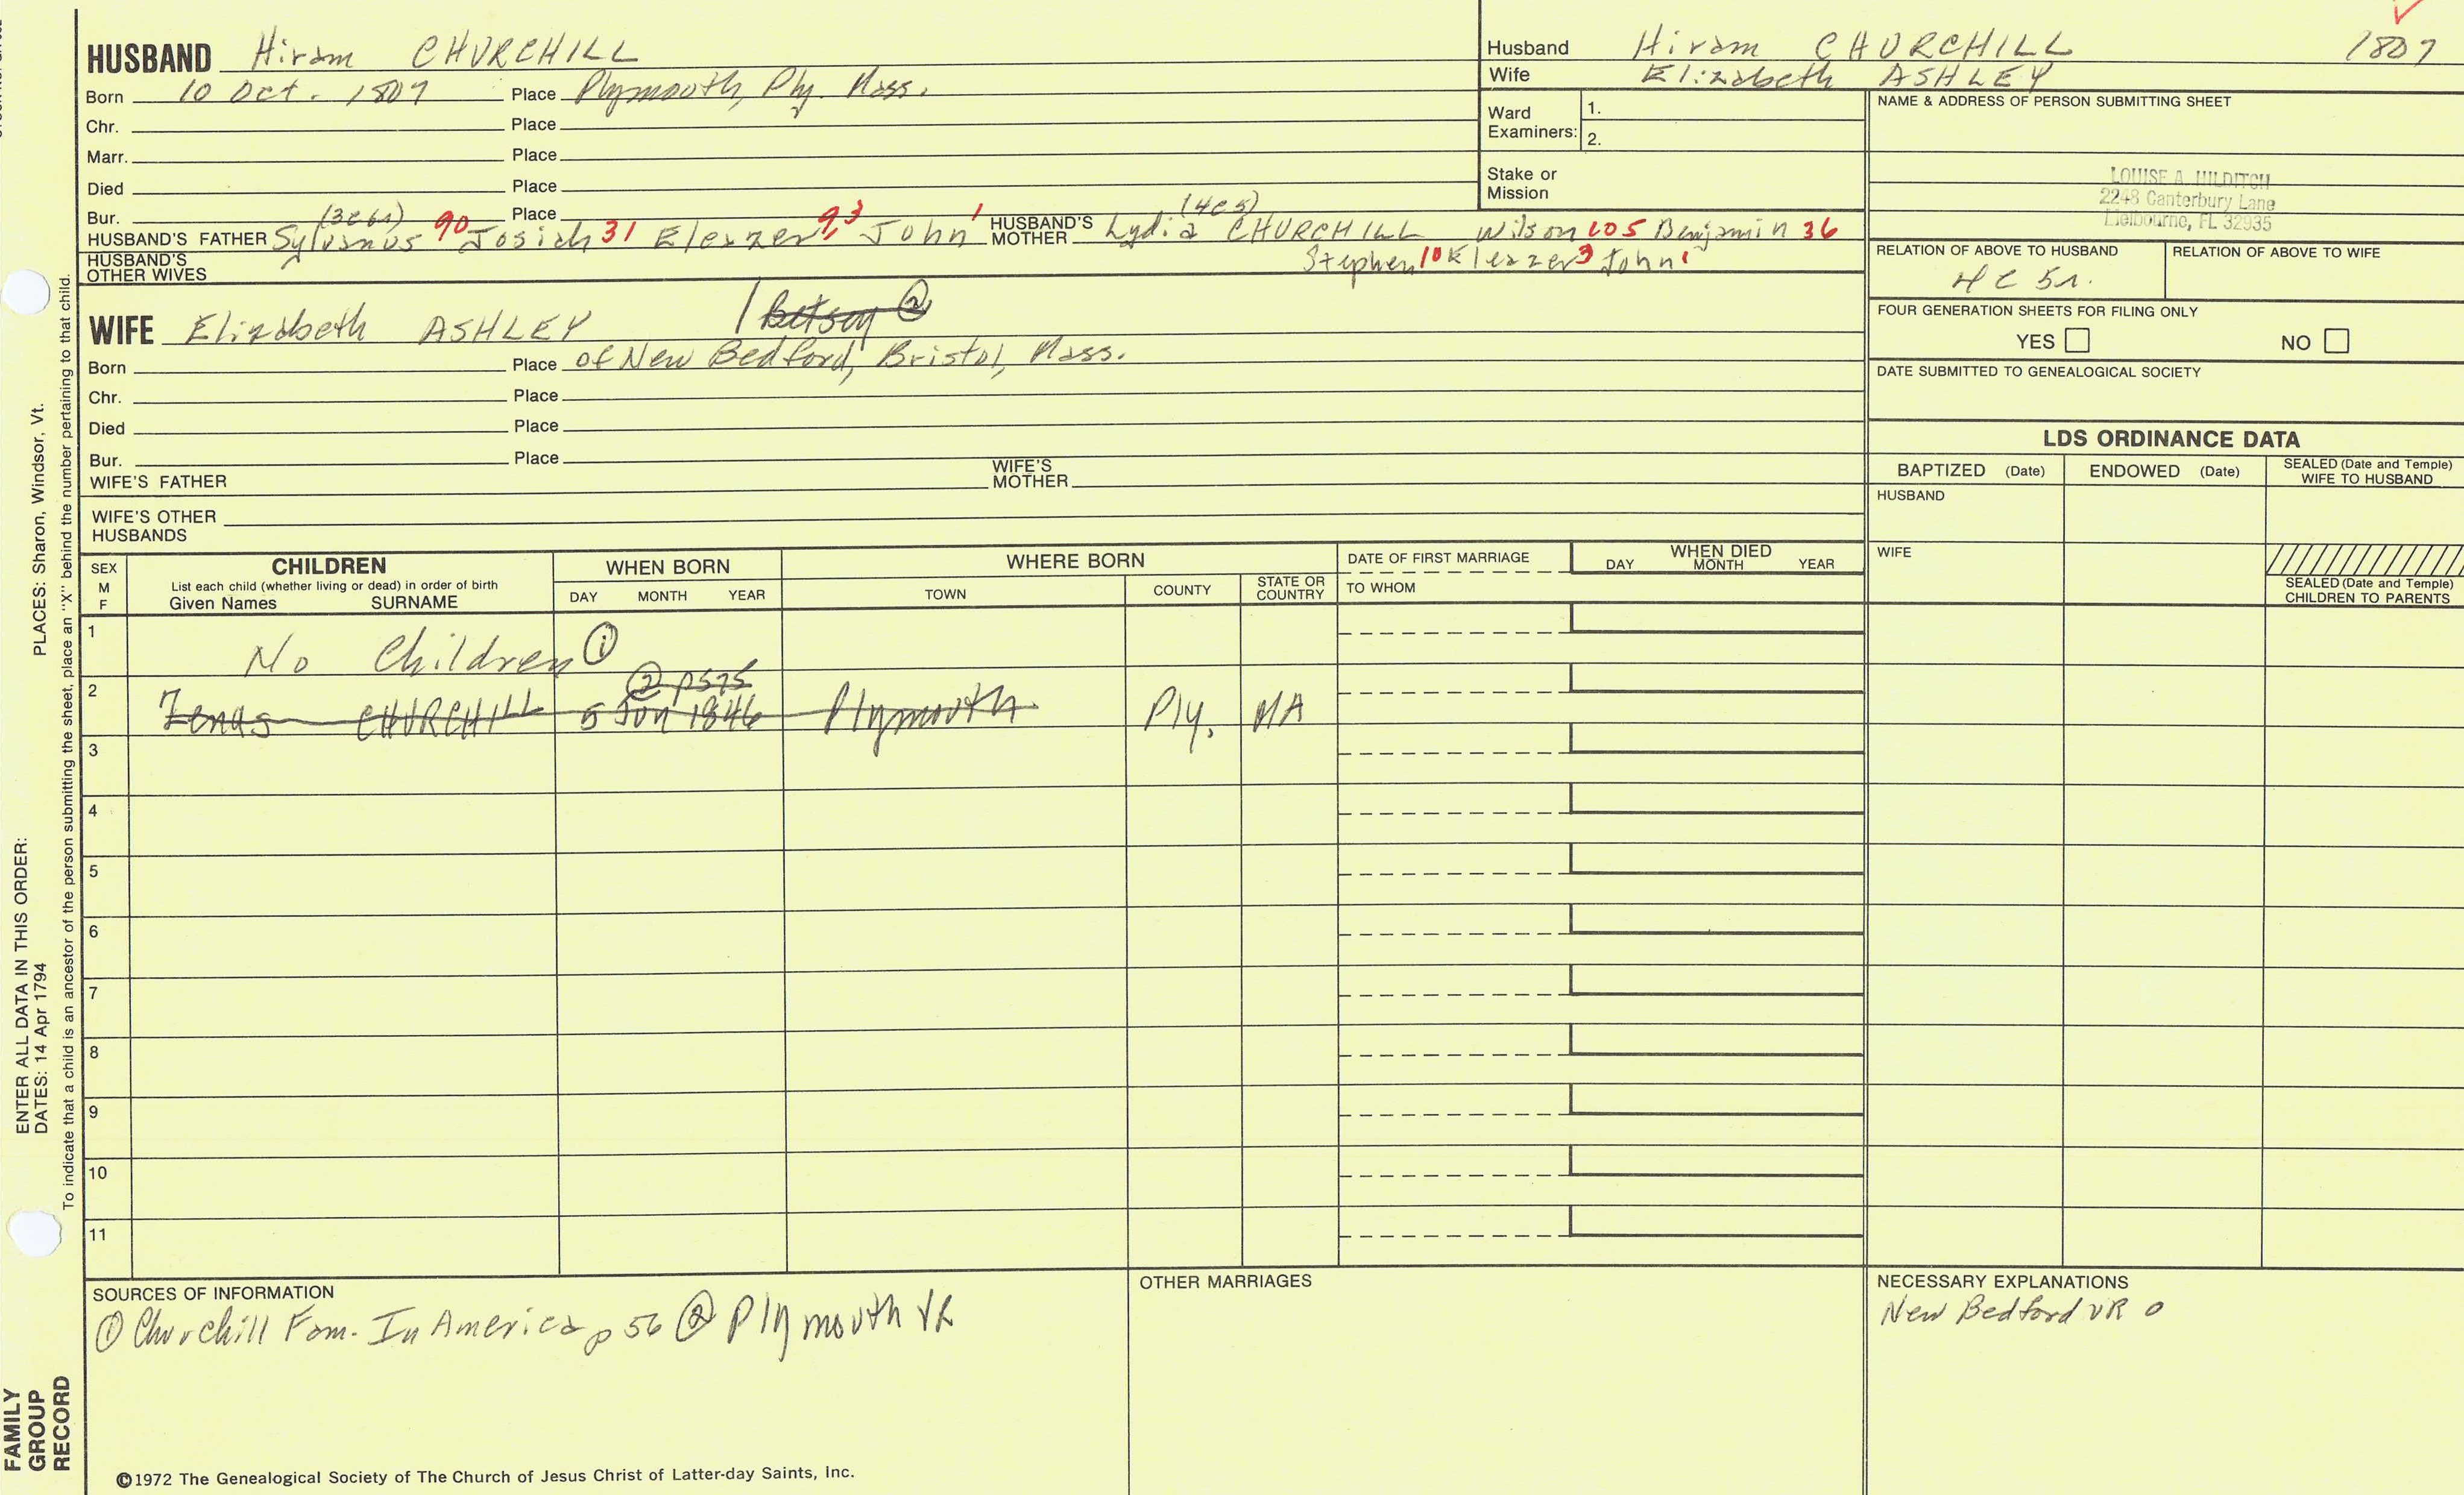 HUSBAND Hiram CHURCHILL
Born 10 Oct. 1807 Place Plymouth, Ply. Mass.
Chr. Place
Marr. Place
Died Place
Bur. Place
(3c61) (4c5)
HUSBAND'S FATHER Sylvanus 90 Josiah 31 Eleazer 9,3 John 1 HUSBAND'S MOTHER Lydia CHURCHILL Wilson 105 Benjamin 36
HUSBAND'S OTHER WIVES Stephen 10 Eleazer 3 John 1
Husband Hiram CHURCHILL 1807
Wife Elizabeth ASHLEY
Ward Examiners: 1.
2.
Stake or Mission
NAME & ADDRESS OF PERSON SUBMITTING SHEET
LOUISE A. HILDITCH
2248 Canterbury Lane
Melbourne, FL 32935
RELATION OF ABOVE TO HUSBAND RELATION OF ABOVE TO WIFE
4C 5r.
FOUR GENERATION SHEETS FOR FILING ONLY
YES NO
DATE SUBMITTED TO GENEALOGICAL SOCIETY
WIFE Elizabeth ASHLEY / Betsey ②
Born Place of New Bedford, Bristol, Mass.
Chr. Place
Died Place
Bur. Place
WIFE'S FATHER WIFE'S MOTHER
WIFE'S OTHER HUSBANDS
LDS ORDINANCE DATA
BAPTIZED (Date) ENDOWED (Date) SEALED (Date and Temple) WIFE TO HUSBAND
HUSBAND
WIFE
SEALED (Date and Temple) CHILDREN TO PARENTS
SEX M F
CHILDREN
List each child (whether living or dead) in order of birth
Given Names SURNAME
WHEN BORN
DAY MONTH YEAR
WHERE BORN
TOWN COUNTY STATE OR COUNTRY
DATE OF FIRST MARRIAGE
TO WHOM
WHEN DIED
DAY MONTH YEAR
1 No Children ①
② p575
2 Zenas CHURCHILL 5 Jun 1846 Plymouth Ply. MA
3
4
5
6
7
8
9
10
11
SOURCES OF INFORMATION
① Churchill Fam. In America p 56 ② Plymouth VR
OTHER MARRIAGES
NECESSARY EXPLANATIONS
New Bedford VR o
©1972 The Genealogical Society of The Church of Jesus Christ of Latter-day Saints, Inc.
FAMILY GROUP RECORD
ENTER ALL DATA IN THIS ORDER:
DATES: 14 Apr 1794 PLACES: Sharon, Windsor, Vt.
To indicate that a child is an ancestor of the person submitting the sheet, place an "X" behind the number pertaining to that child.